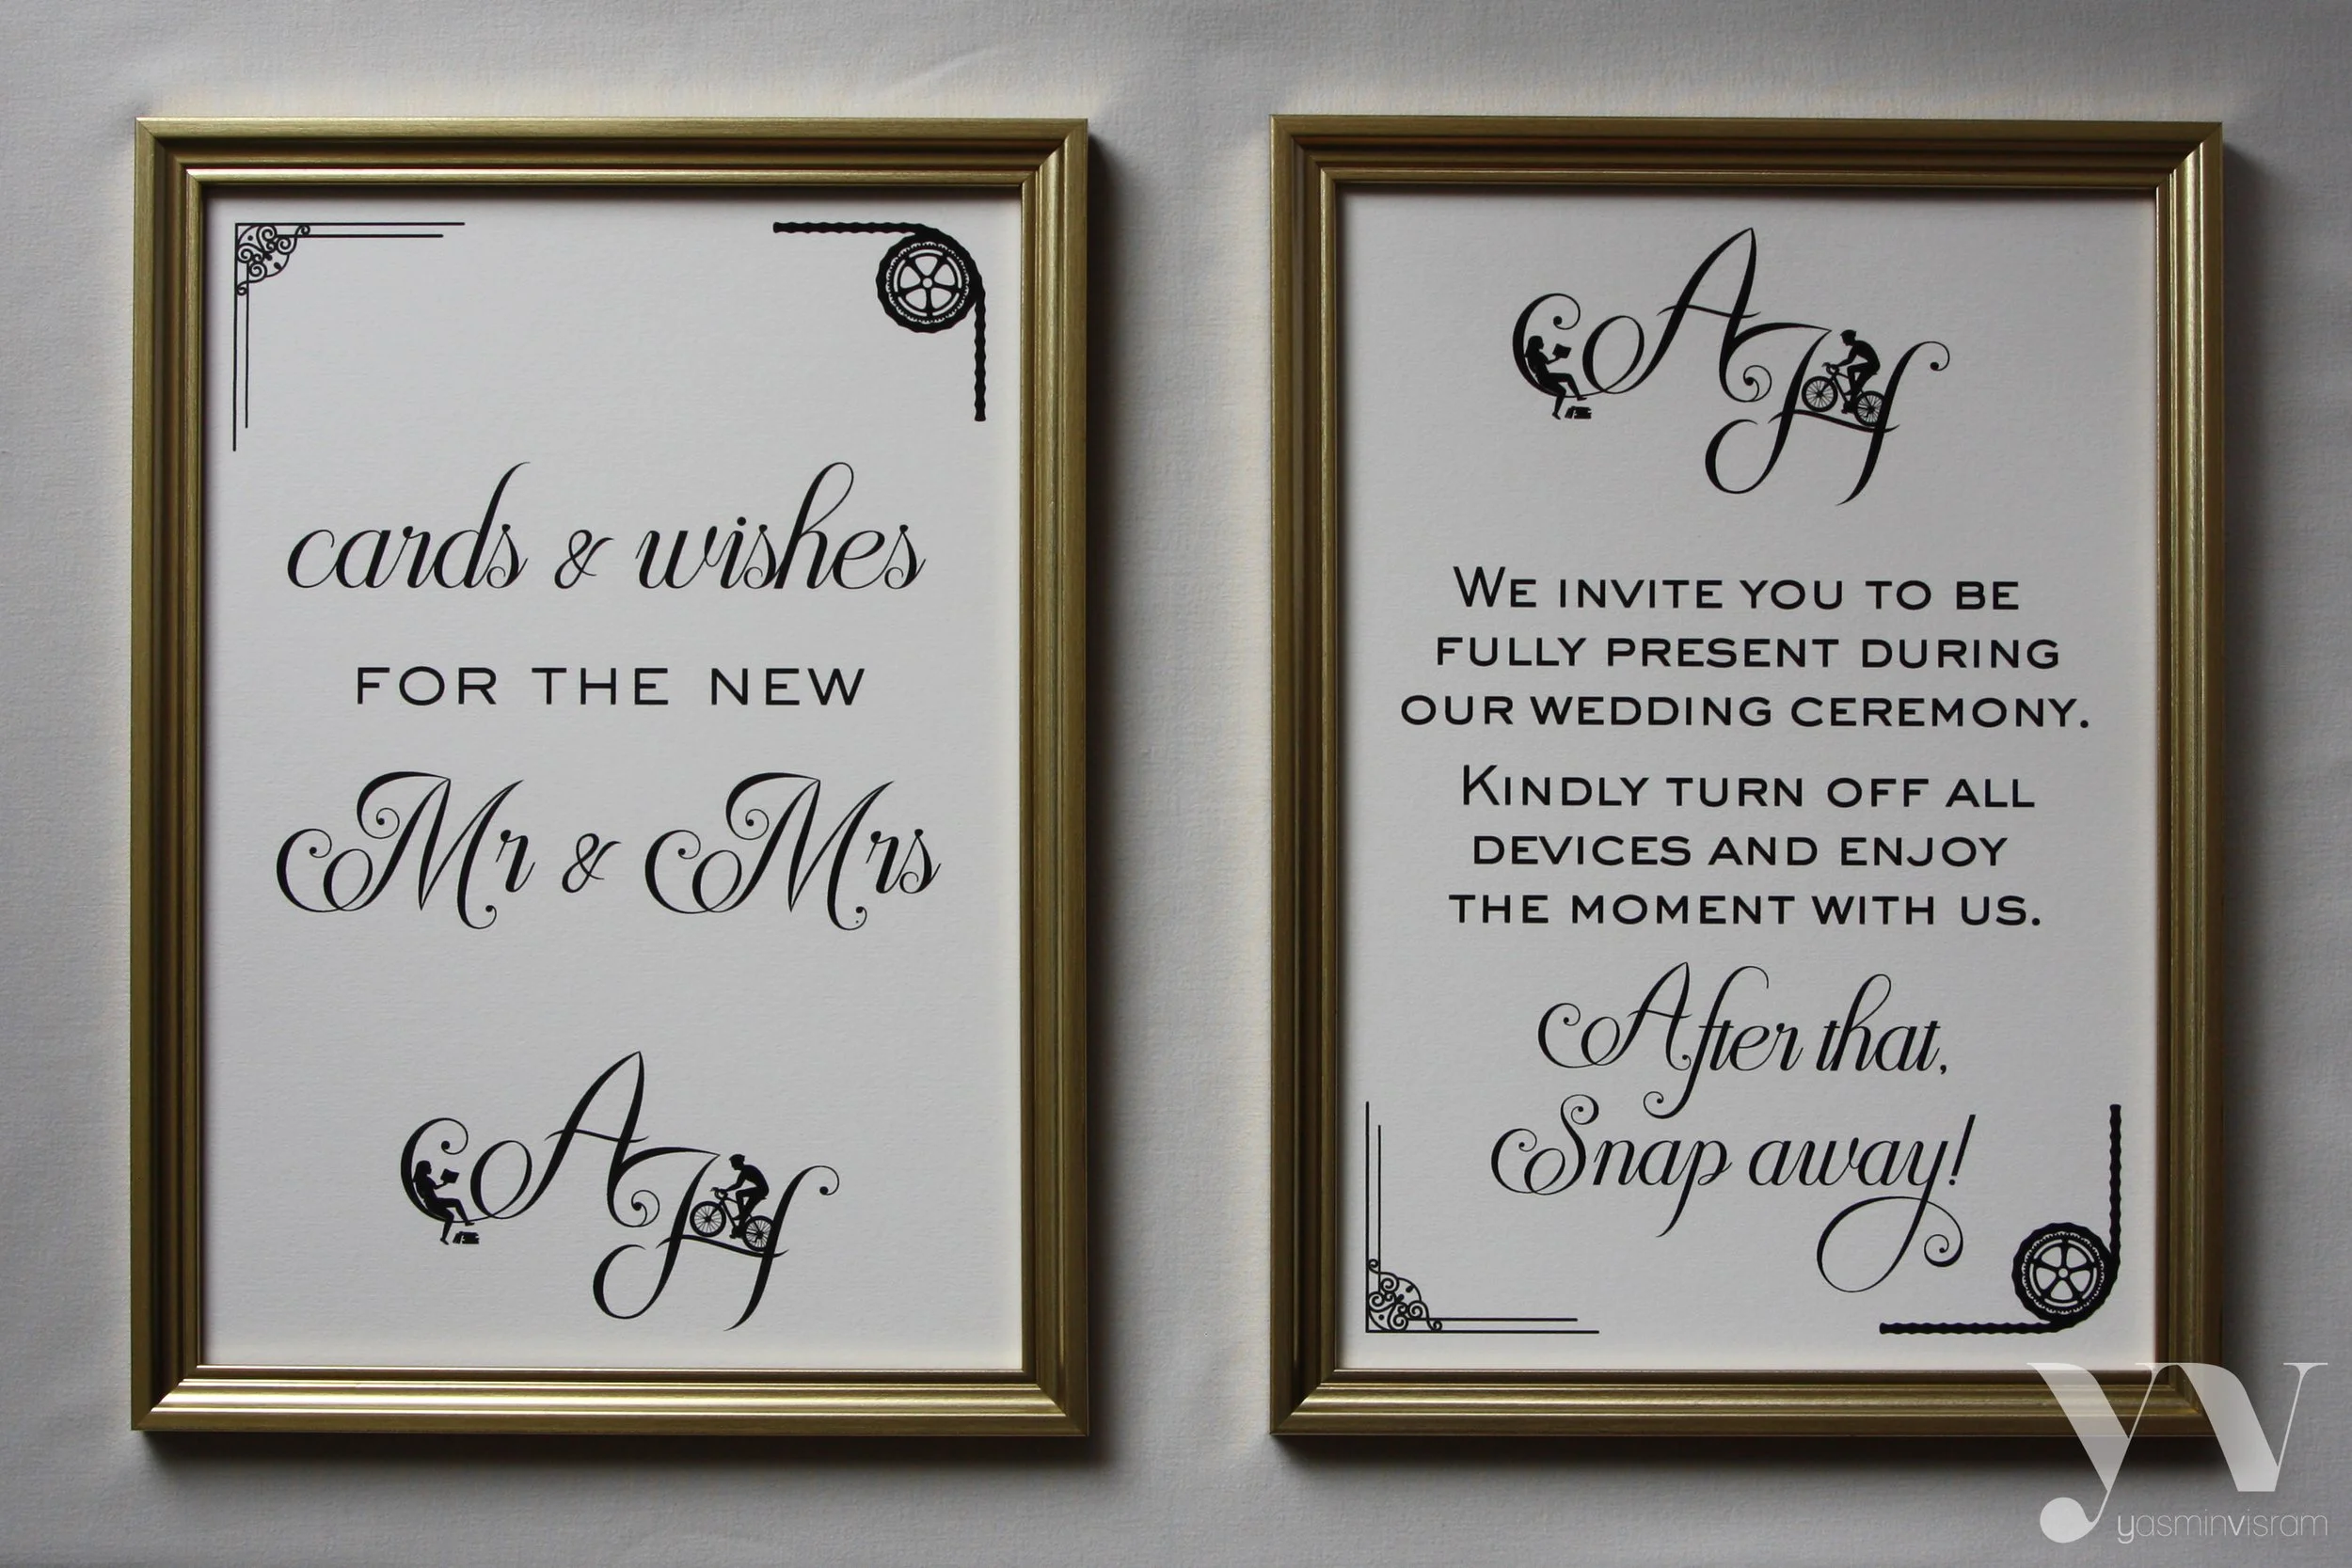 cards & wishes
FOR THE NEW
Mr & Mrs
AH
AH
WE INVITE YOU TO BE
FULLY PRESENT DURING
OUR WEDDING CEREMONY.
KINDLY TURN OFF ALL
DEVICES AND ENJOY
THE MOMENT WITH US.
After that,
Snap away!
yv
yasminvisram